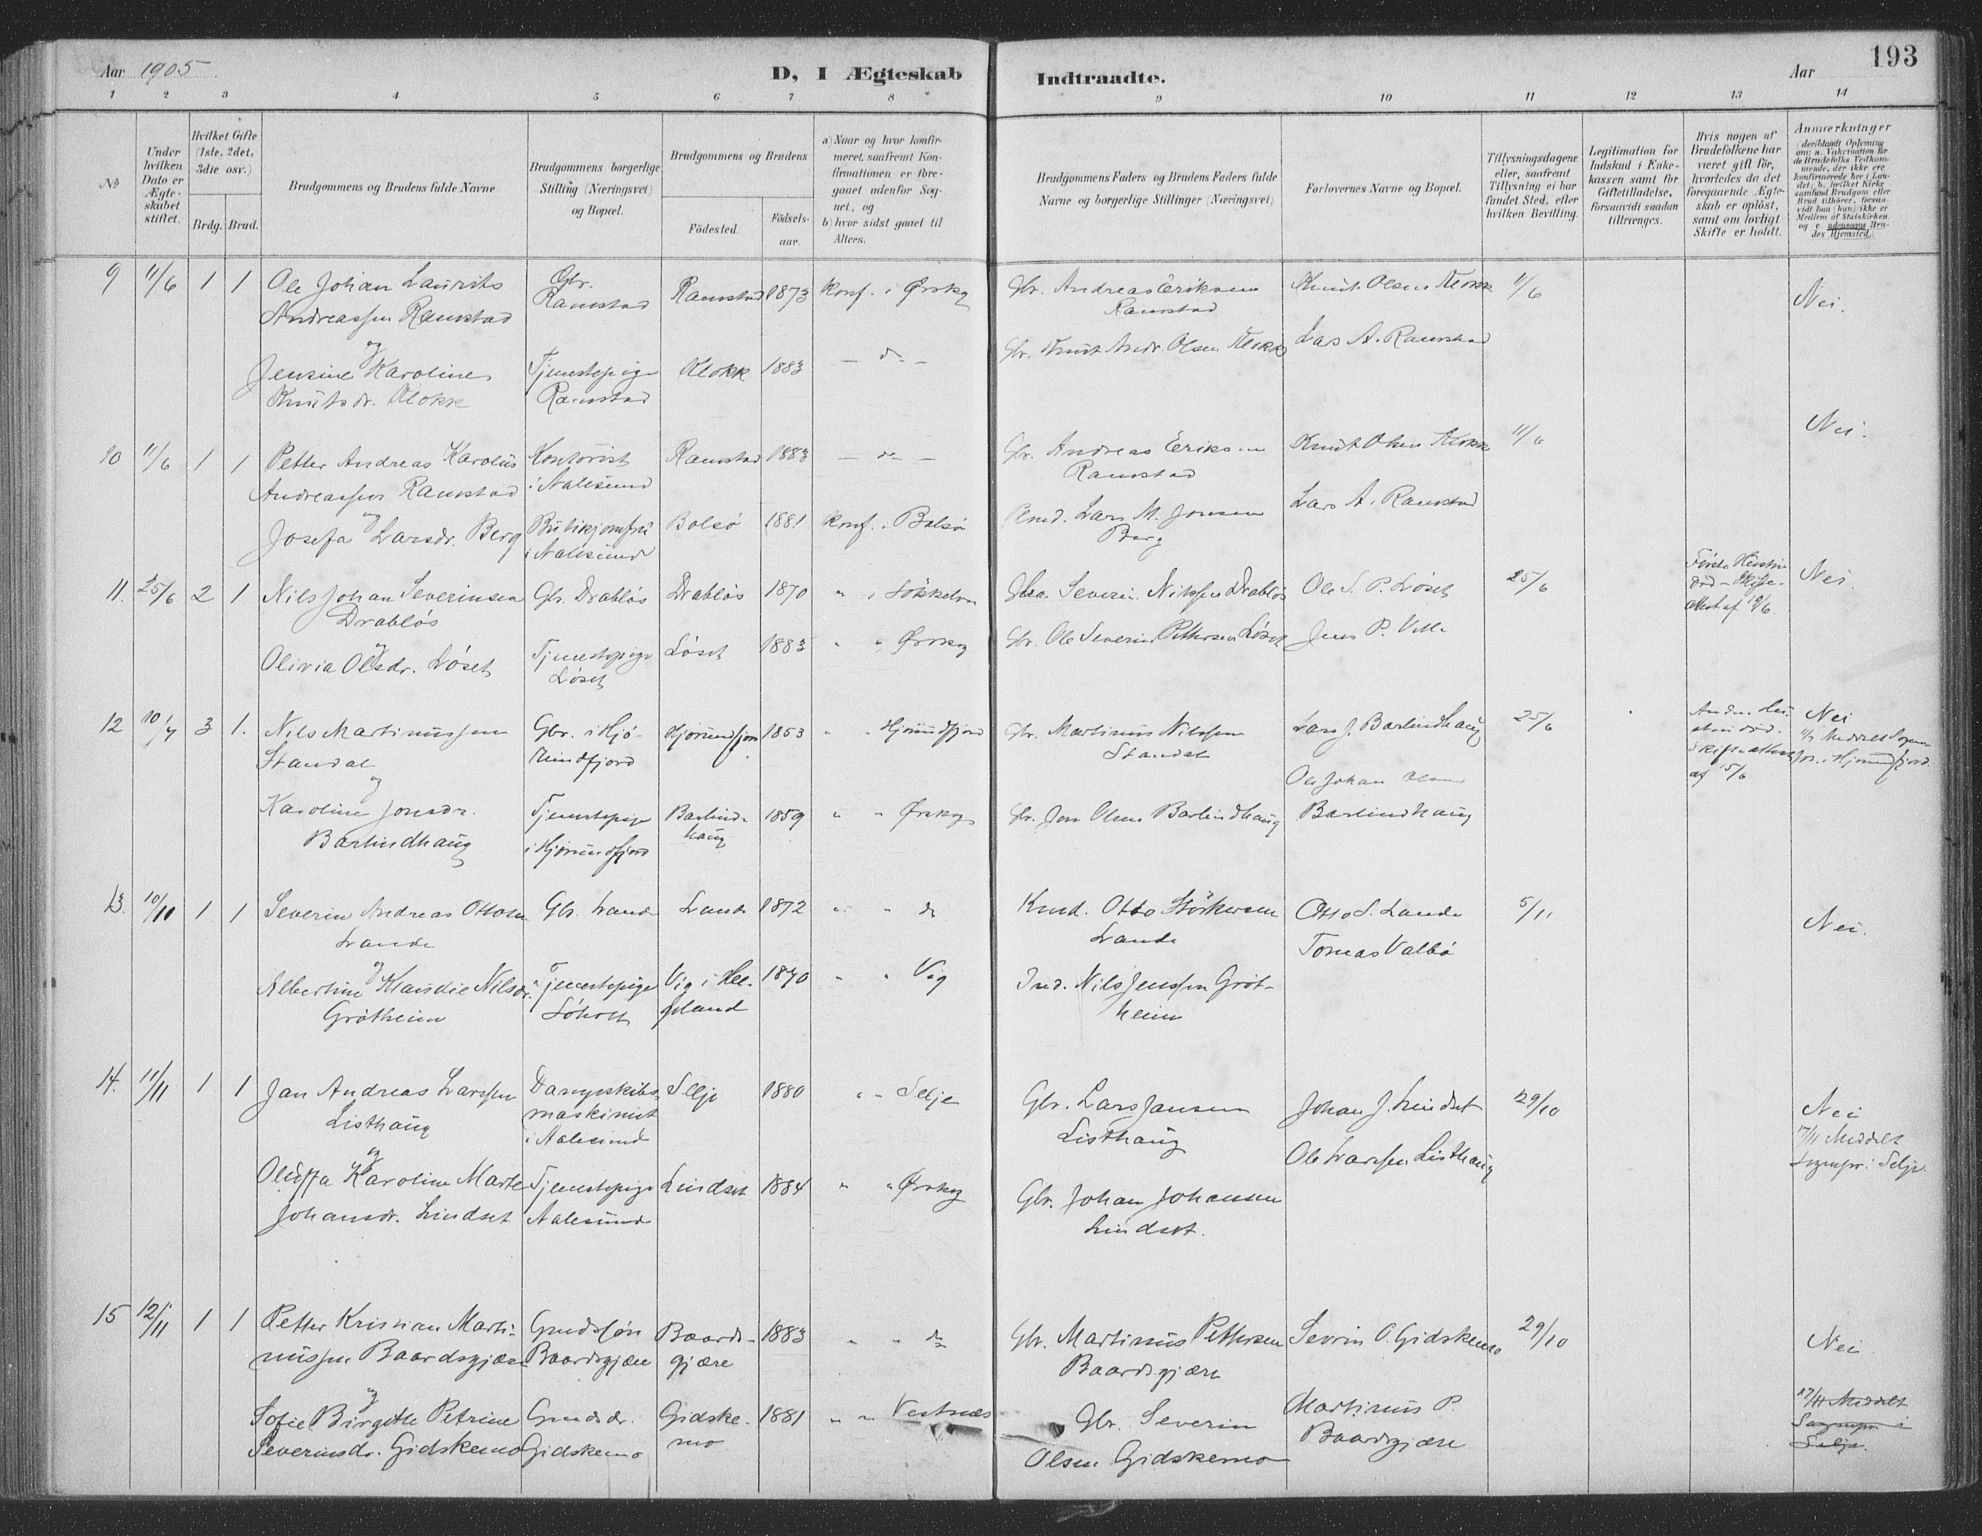 Aar 1905 D, I Ægteskab Indtraadte. Aar 193
1 2 3 4 5 6 7 8 9 10 11 12 13 14
No
Under hvilken Dato er Ægteskabet stiftet.
Hvilket Gifte (1ste, 2det, 3die osv.)
Brdg. Brud.
Brudgommens og Brudens fulde Navne
Brudgommens borgerlige Stilling (Næringsvei) og Bopæl.
Brudgommens og Brudens
Fødested.
Fødsels-aar.
a) Naar og hvor konfirmeret, saafremt Konfirmationen er foregaaet udenfor Sognet, og
b) hvor sidst gaaet til Alters.
Brudgommens Faders og Brudens Faders fulde Navne og borgerlige Stillinger (Næringsvei)
Forlovernes Navne og Bopæl.
Tillysningsdagene eller, saafremt Tillysning ei har fundet Sted, efter hvilken Bevilling.
Legitimation for Indskud i Enkekassen samt for Giftetilladelse, forsaavidt saadan tiltrænges.
Hvis nogen af Brudefolkene har været gift før, hvorledes da det foregaaende Ægteskab er opløst, samt om lovligt Skifte er holdt.
Anmerkninger
9 11/6 1 1 Ole Johan Laurits Gbr. Ramstad 1873 Konf. i Ørskog Gbr. Andreas Eriksen Knut Olsen Klokk 11/6 Nei.
Andreassen Ramstad Ramstad Ramstad
og
Jensine Karoline Tjenestepige Klokk 1883 — do — Gbr. Knut Andr. Olsen Klokk Lars A. Ramstad
Knutsdr. Klokk Ramstad
10 11/6 1 1 Petter Andreas Karolus Kontorist Ramstad 1883 — do — Gbr. Andreas Eriksen Knut Olsen Klokk 11/6 Nei.
Andreassen Ramstad i Aalesund Ramstad
og
Josefa Larsdr. Berg Butikjomfru Bolsø 1881 Konf. i Bolsø Lars M. Jonsen Lars A. Ramstad
i Aalesund Berg
11. 25/6 2 1 Nils Johan Severinsen Gbr. Drabløs Drabløs 1870 " i Søkkelven Severin Nilssen Drabløs Ole S. P. Løset 25/6 Nei.
Drabløs
og
Olivia Olsdr. Løset Tjenestepige Løset 1883 " " Ørskog Gbr. Ole Severin Pettersen Løset Jens P.
Løset
12 10/7 3 1. Nils Martinussen Gbr. i Hjø- Hjørundfjord 1853 " " Hjørundfjord Gbr. Martinus Nilssen Lars J. Barlindhaug 25/6 Nei
Standal rundfjord Standal Ole Johan
og
Karoline Jonsdr. Tjenestepige Barlind- 1859 " " Ørskog Gbr. Jon Olsen Barlindhaug Barlindhaug
Barlindhaug i Hjørundfjord haug
13. 10/10 1 1 Severin Andreas Ottosen Gbr. Lande Lande 1872 " " do Otto Størkersen Otto S. Lande 5/11 Nei.
Lande Lande Tomas Valbø
og
Albertine Klaudie Nilsdr. Tjenestepige Vig i Hel- 1870 " " Vig Ind. Nils Jenssen Grøt-
Grøtheim Søholt geland heim
14. 11/11 1 1 Jan Andreas Larssen Dampskibs- Selje 1880 " " Selje Gbr. Lars Jansen Johan J. Lindset 29/10 Nei
Listhaug maskinist Listhaug 17/11 Meddelt
i Aalesund Ole Larssen Listhaug Sognepr. i Selje.
og
Oluffa Karoline Marte Tjenestepige Lindset 1884 " " Ørskog Gbr. Johan Johansen
Johansdr. Lindset Aalesund Lindset.
15 12/11 1 1 Petter Kristian Marti- Gmdssøn Baards- 1883 " " do Gbr. Martinus Pettersen Severin O. Gidskemo 29/10 Nei.
nussen Baardsgjære Baardsgjære gjære Baardsgjære
og
Sofie Birgitte Petrine Gmdsdr. Gidske- 1881 " " Vestnæs Gbr. Severin Martinus P. 17/11 Meddelt
Severinsdr. Gidskemo Gidskemo mo Olsen Gidskemo Baardsgjære Sognepr. i
Selje.